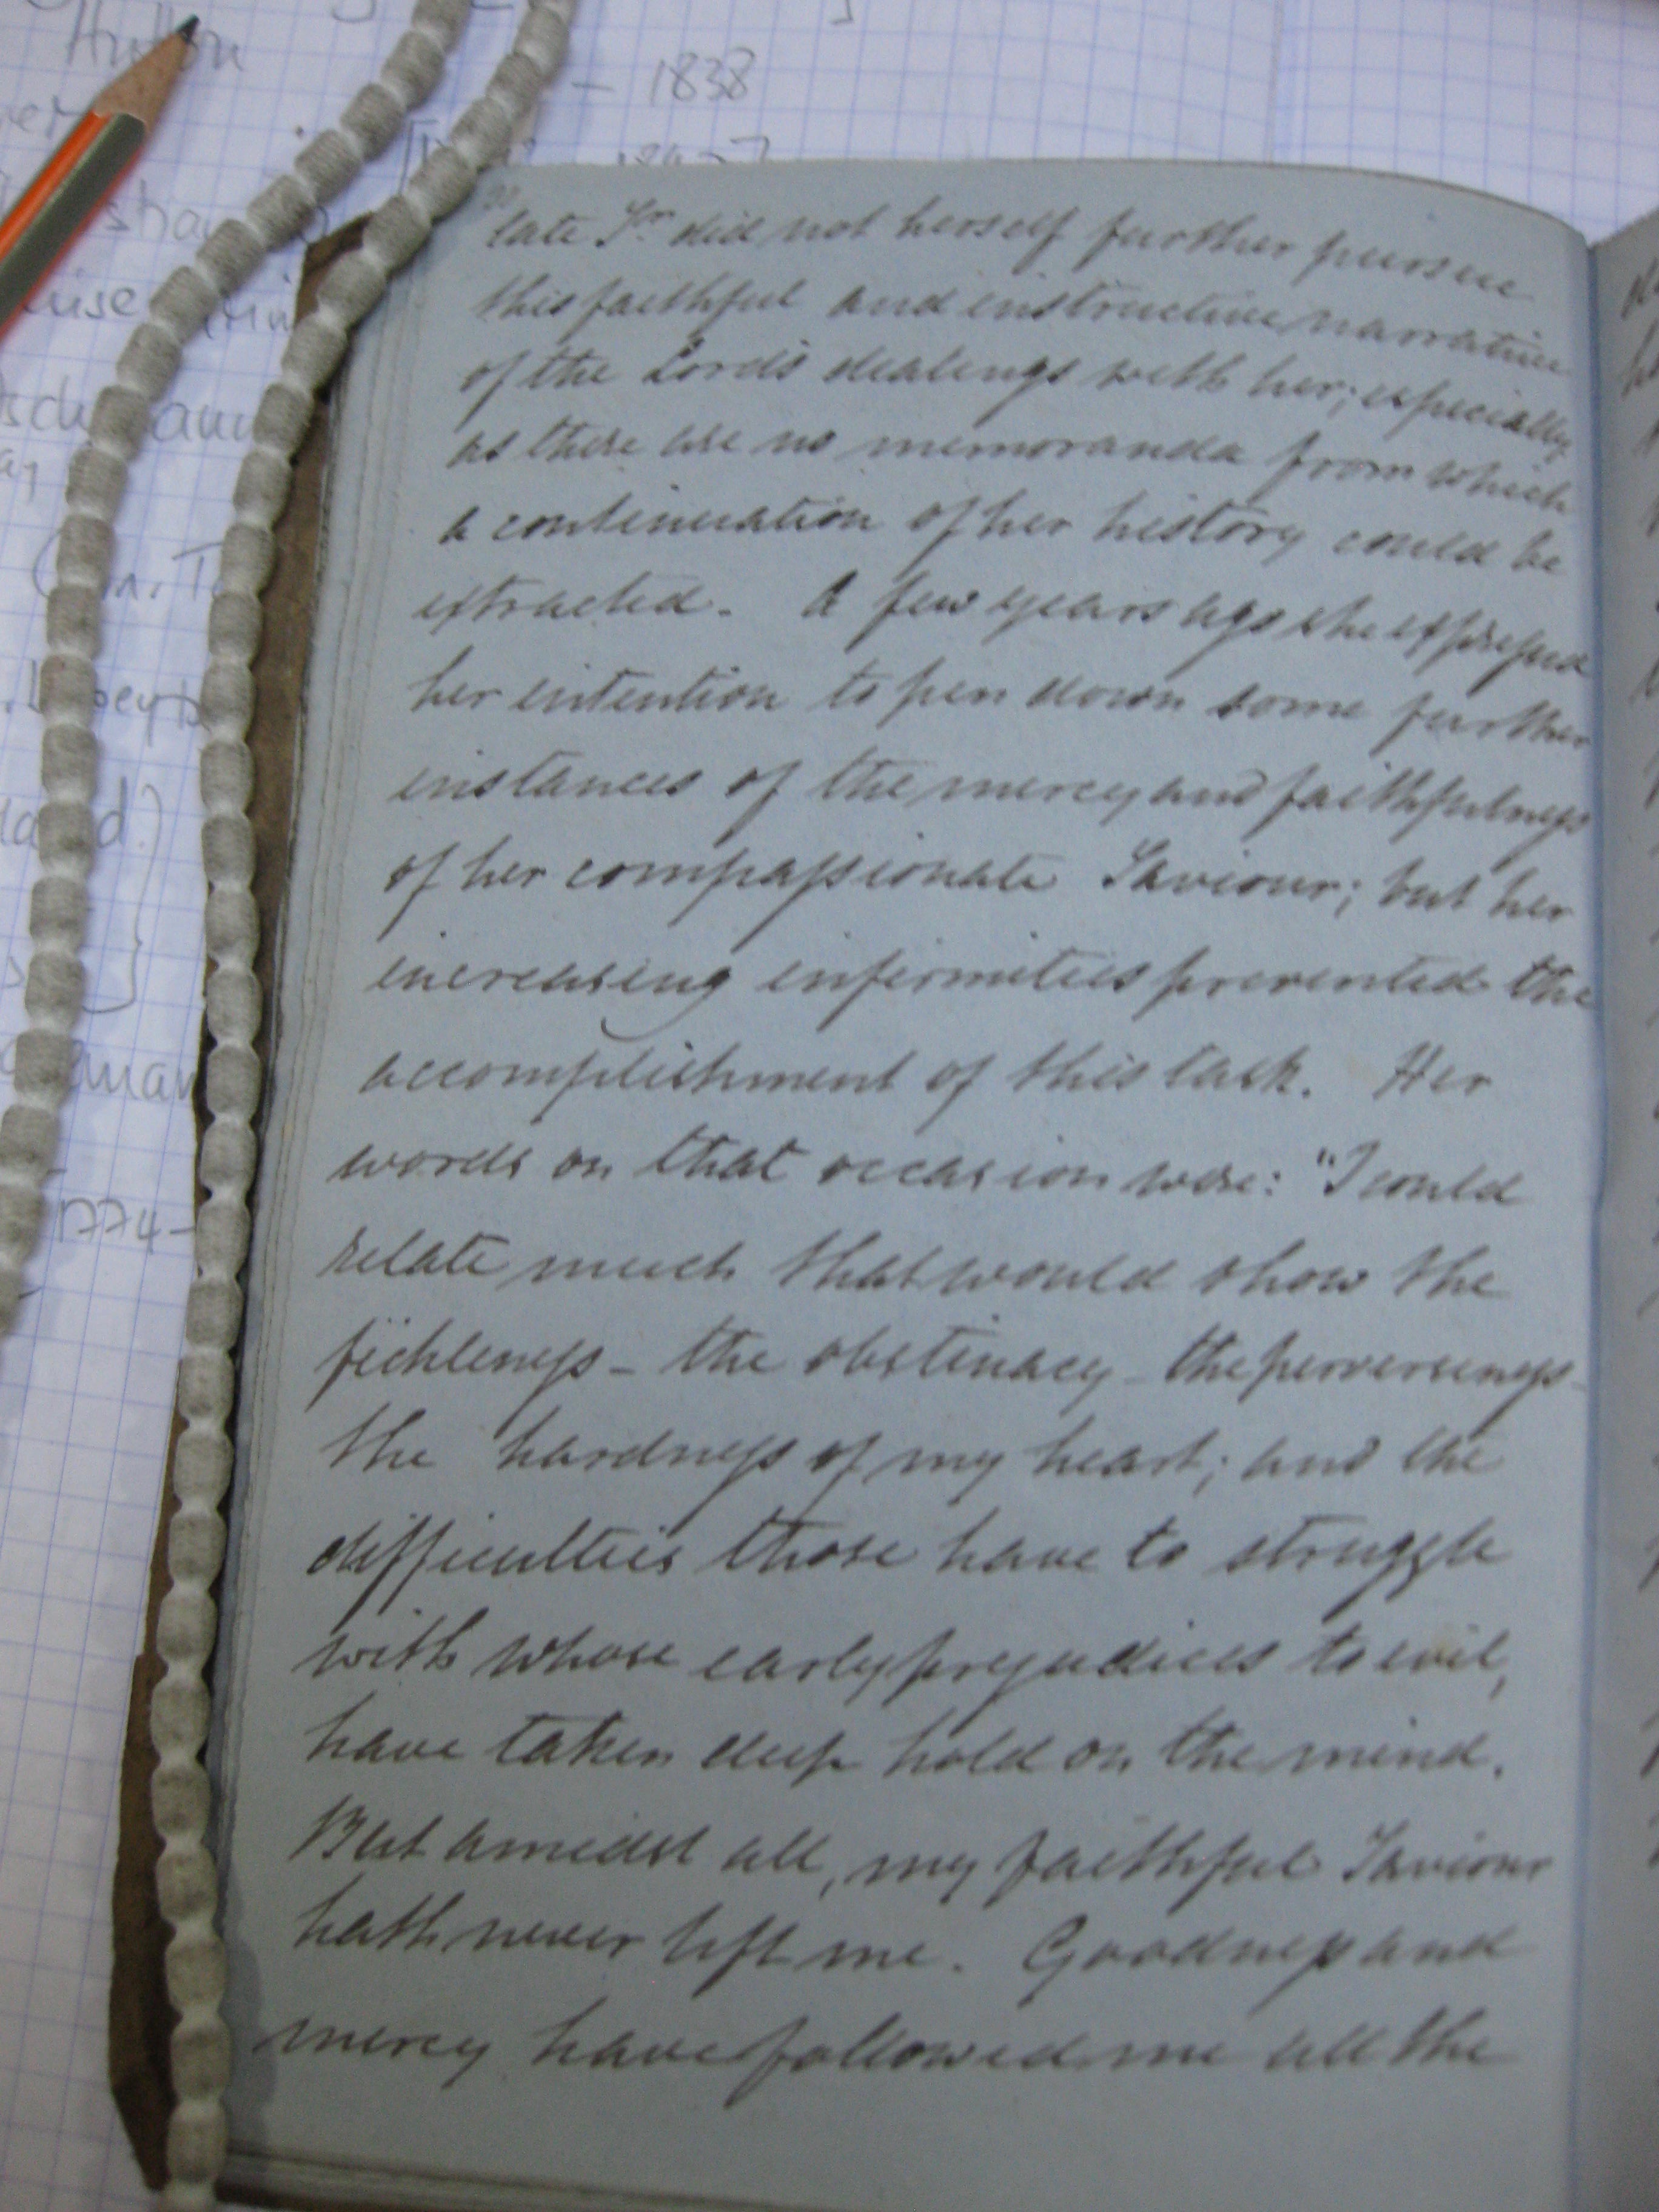 Hutton
- 1838
late Sr. did not herself further pursue
this faithful and instructive narrative
of the Lord's dealings with her; especially
as there are no memoranda from which
a continuation of her history could be
extracted. A few years ago she expressed
her intention to pen down some further
instances of the mercy and faithfulness
of her compassionate Saviour; but her
increasing infirmities prevented the
accomplishment of this task. Her
words on that occasion were: "I could
relate much that would show the
fickleness - the obstinacy - the perverseness -
the hardness of my heart; and the
difficulties those have to struggle
with whose early prejudices to evil,
have taken deep hold on the mind.
But amidst all, my faithful Saviour
hath never left me. Goodness and
mercy have followed me all the
1774-